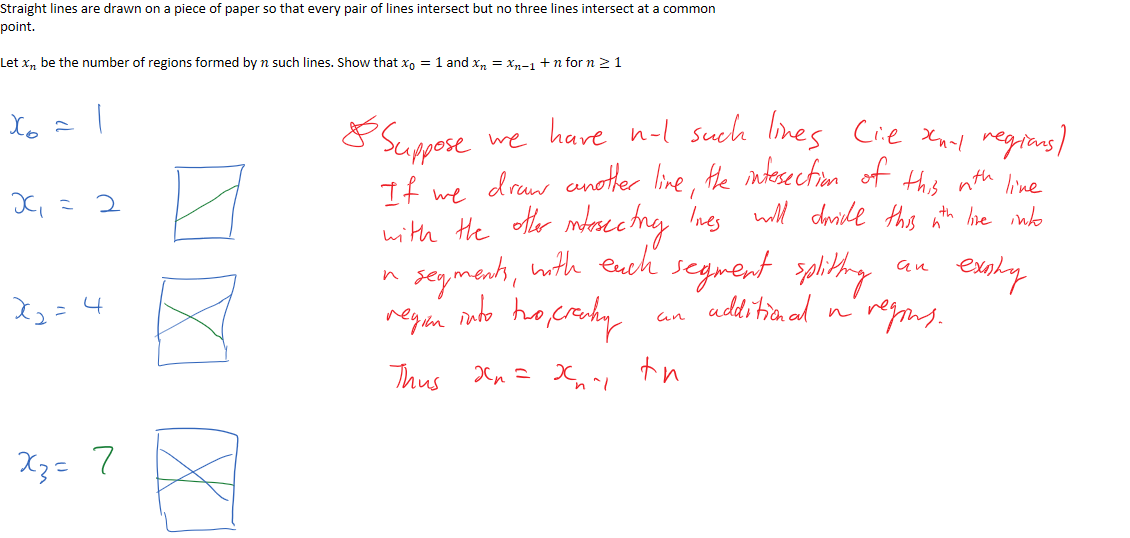 Straight lines are drawn on a piece of paper so that every pair of lines intersect but no three lines intersect at a common
point.
Let xₙ be the number of regions formed by n such lines. Show that x₀ = 1 and xₙ = xₙ₋₁ + n for n ≥ 1
x₀ = 1
x₁ = 2
x₂ = 4
x₃ = 7
Suppose we have n-1 such lines (i.e xₙ₋₁ regions)
If we draw another line, the intesection of this nth line
with the other intersecting lines will divide this nth line into
n segments, with each segment splitting an existing
region into two, creating an additional n regions.
Thus xₙ = xₙ₋₁ + n